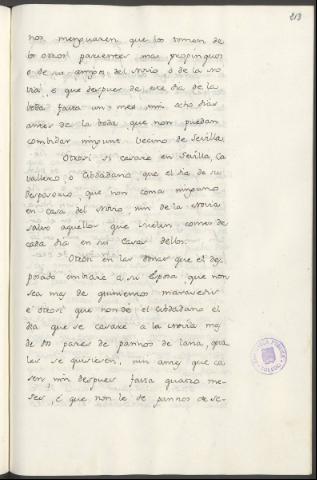 213
nos menguaren que los tomen de
los otros parientes mas propinquos
o de sus amigos del Novio, o de la No
via, e que despues de ese dia de la
boda fasta un mes, nin ocho dias
antes de la boda, que non puedan
combidar ninguno vecino de Sevilla
Otrosi si casare en Sevilla, Ca
vallero, o Cibdadano que el dia de su
desposorio, que non coma ninguno
en casa del Novio, nin de la Novia
salvo aquellos que suelen comer de
cada dia en sus Casas dellos.
Otrosi en las donas que el des
posado embiare a su Esposa que non
sea mas de quinientos maravedis
e otrosi que non dé el Cibdadano el
dia que se casare a la Novia mas
de dos pares de pannos de lana, qua
les se quisieren, nin antes que ca
sen, nin despues fasta quatro me-
ses, é que non le de pannos de se-
TOLEDO